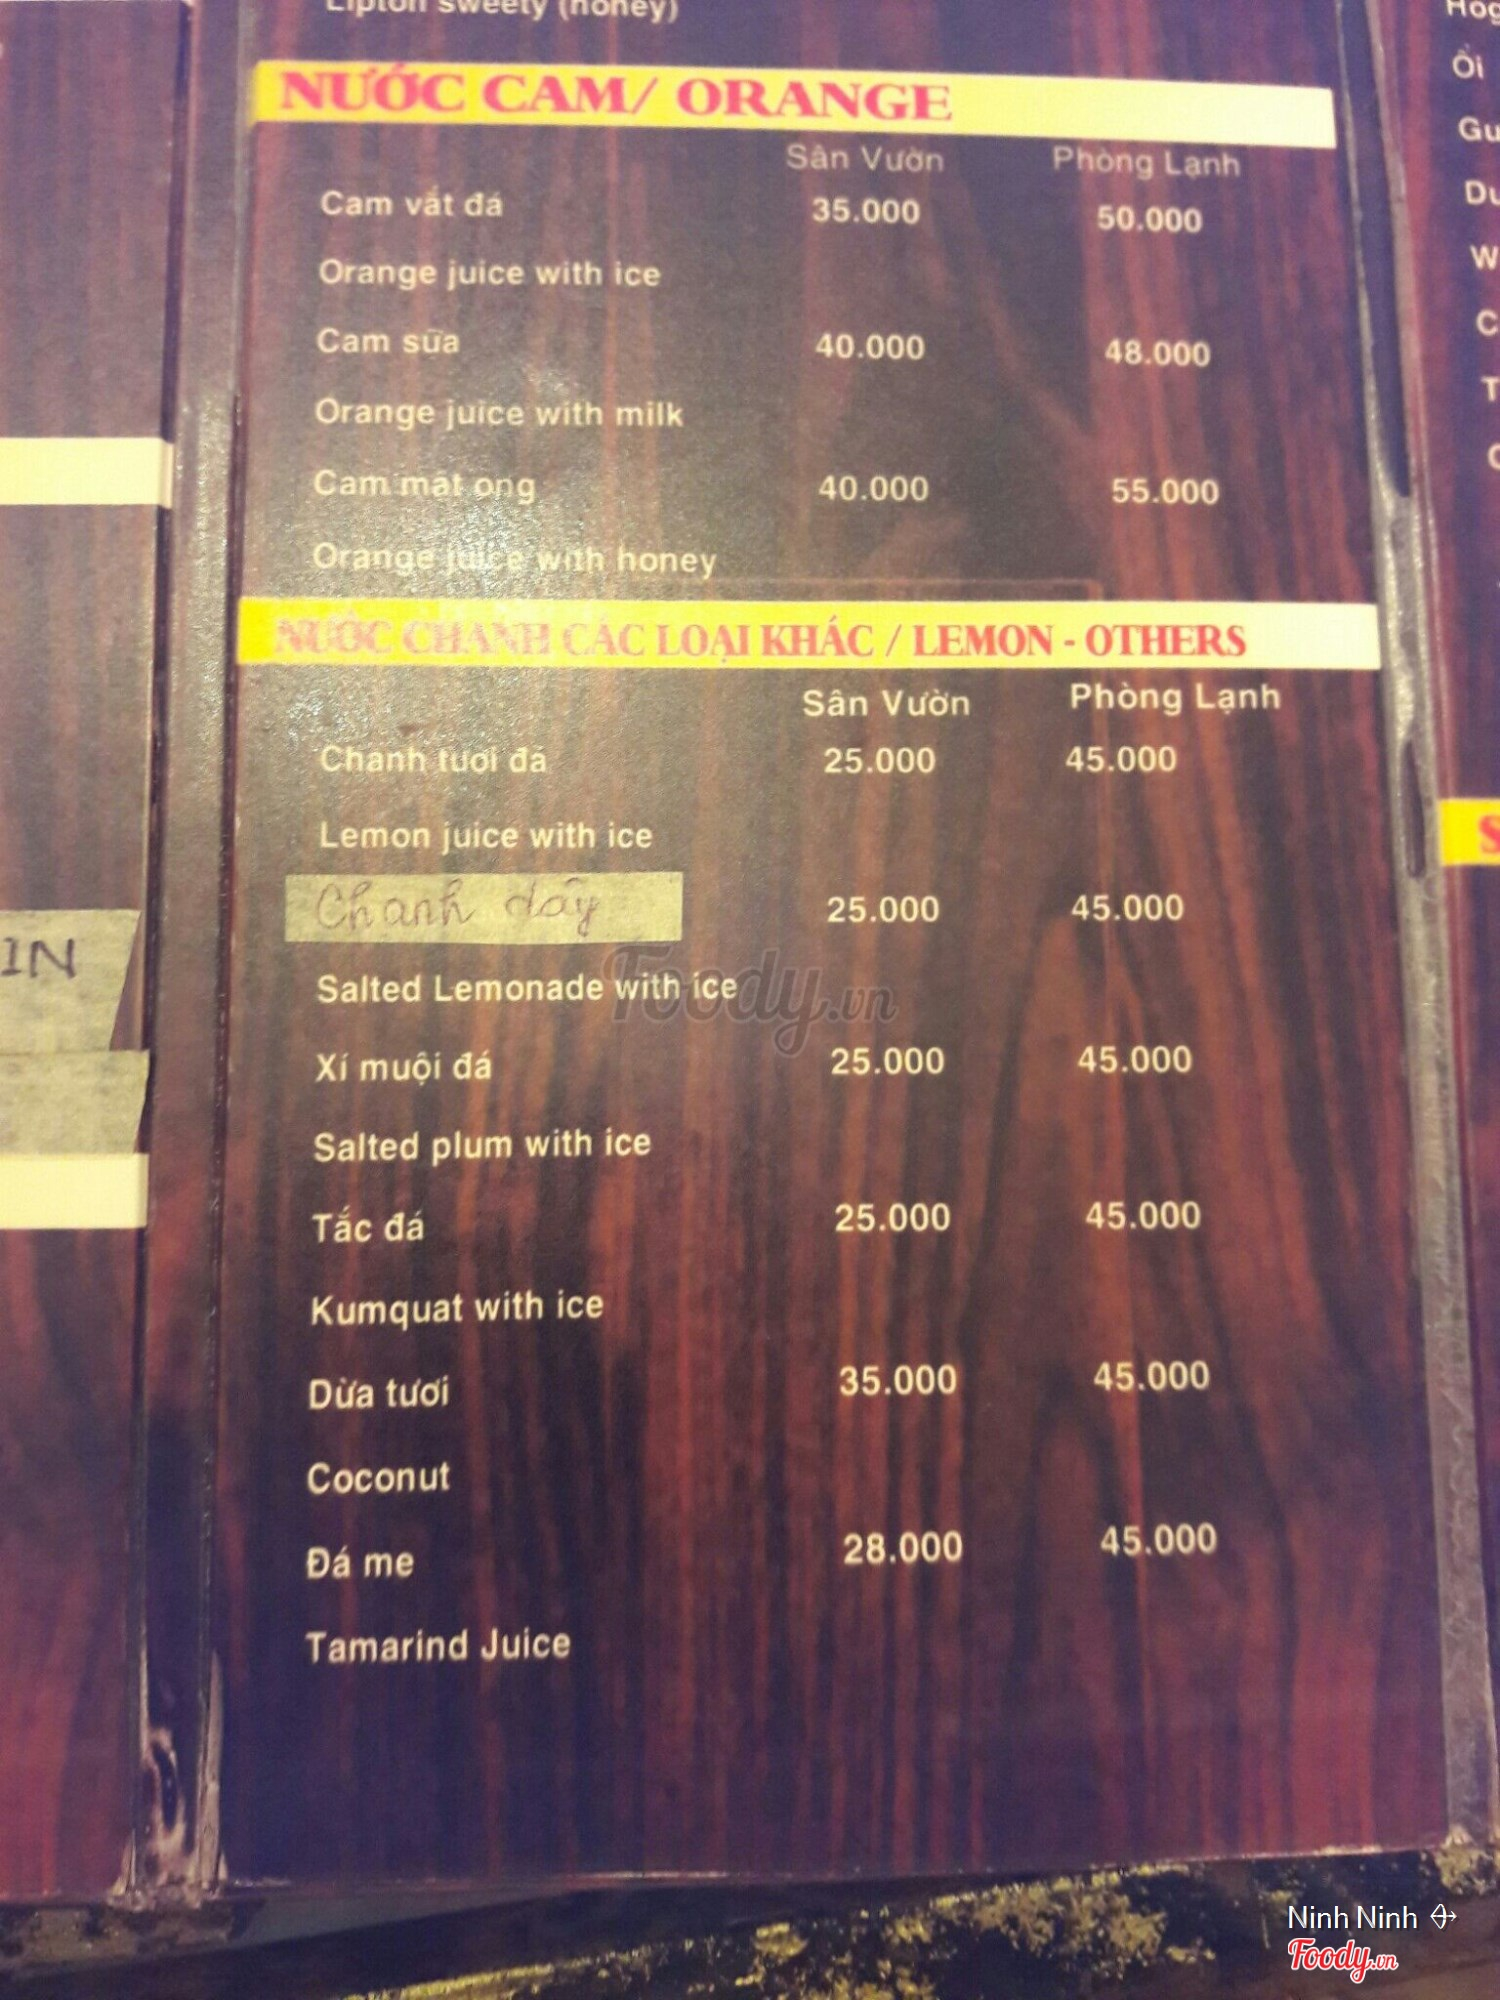 Lipton sweety (honey)
NƯỚC CAM/ ORANGE
Sân Vườn Phòng Lạnh
Cam vắt đá 35.000 50.000
Orange juice with ice
Cam sữa 40.000 48.000
Orange juice with milk
Cam mật ong 40.000 55.000
Orange juice with honey
NƯỚC CHANH CÁC LOẠI KHÁC / LEMON - OTHERS
Sân Vườn Phòng Lạnh
Chanh tươi đá 25.000 45.000
Lemon juice with ice
Chanh dây 25.000 45.000
Salted Lemonade with ice
Xí muội đá 25.000 45.000
Salted plum with ice
Tắc đá 25.000 45.000
Kumquat with ice
Dừa tươi 35.000 45.000
Coconut
Đá me 28.000 45.000
Tamarind Juice
IN
Ổi
Foody.vn
Ninh Ninh
Foody.vn